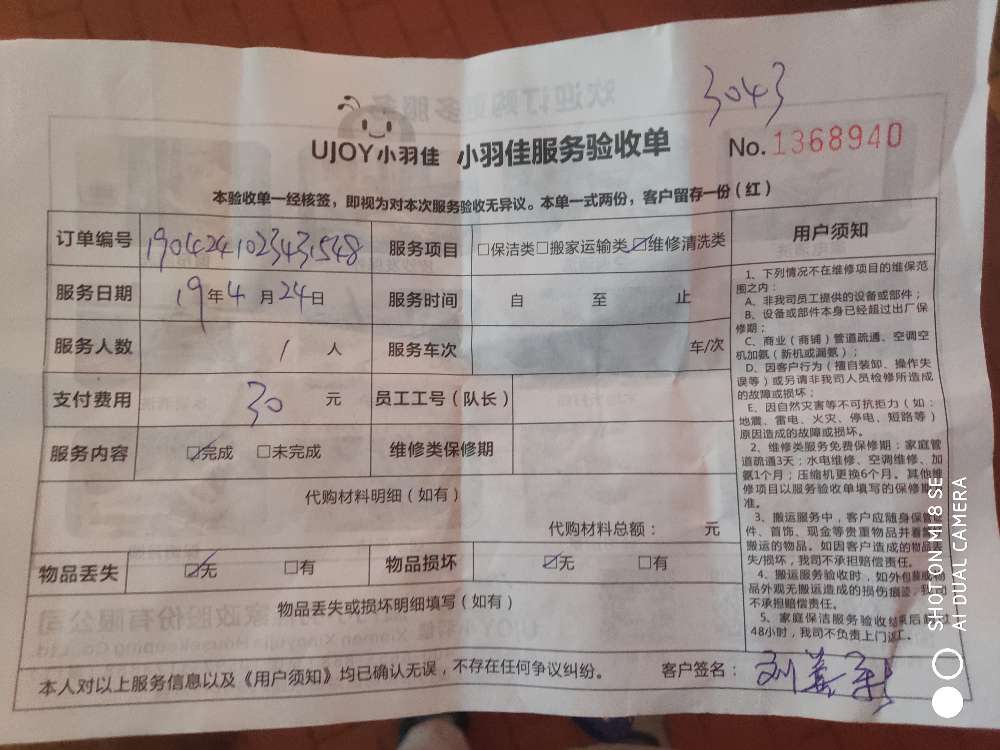 3043
UJOY小羽佳 小羽佳服务验收单
No.1368940
本验收单一经核签，即视为对本次服务验收无异议。本单一式两份，客户留存一份（红）
订单编号 190424102343548 服务项目 □保洁类□搬家运输类☑维修清洗类
服务日期 19年4月24日 服务时间 自 至 止
服务人数 1人 服务车次 车/次
支付费用 30 元 员工工号（队长）
服务内容 ☑完成 □未完成 维修类保修期
代购材料明细（如有）
代购材料总额： 元
物品丢失 ☑无 □有 物品损坏 ☑无 □有
物品丢失或损坏明细填写（如有）
用户须知
1、下列情况不在维修项目的维保范
围之内：
A、非我司员工提供的设备或部件；
B、设备或部件本身已经超过出厂保
修期；
C、商业（商铺）管道疏通、空调空
机加氨（新机或漏氨）；
D、因客户行为（擅自装卸、操作失
误等）或另请非我司人员检修所造成
的故障或损坏；
E、因自然灾害等不可抗拒力（如：
地震、雷电、火灾、停电、短路等）
原因造成的故障或损坏。
2、维修类服务免费保修期：家庭管
道疏通3天；水电维修、空调维修、加
氨1个月；压缩机更换6个月。其他维
修项目以服务验收单填写的保修期
准。
3、搬运服务中，客户应随身保管
件、首饰、现金等贵重物品并看
搬运的物品。如因客户造成的物品
失/损坏，我司不承担赔偿责任。
4、搬运服务验收时，如外包装或物
品外观无搬运造成的损伤痕迹，我司
不承担赔偿责任。
5、家庭保洁服务验收结束后
48小时，我司不负责上门返工。
本人对以上服务信息以及《用户须知》均已确认无误，不存在任何争议纠纷。 客户签名：
SHOT ON MI 8 SE
AI DUAL CAMERA